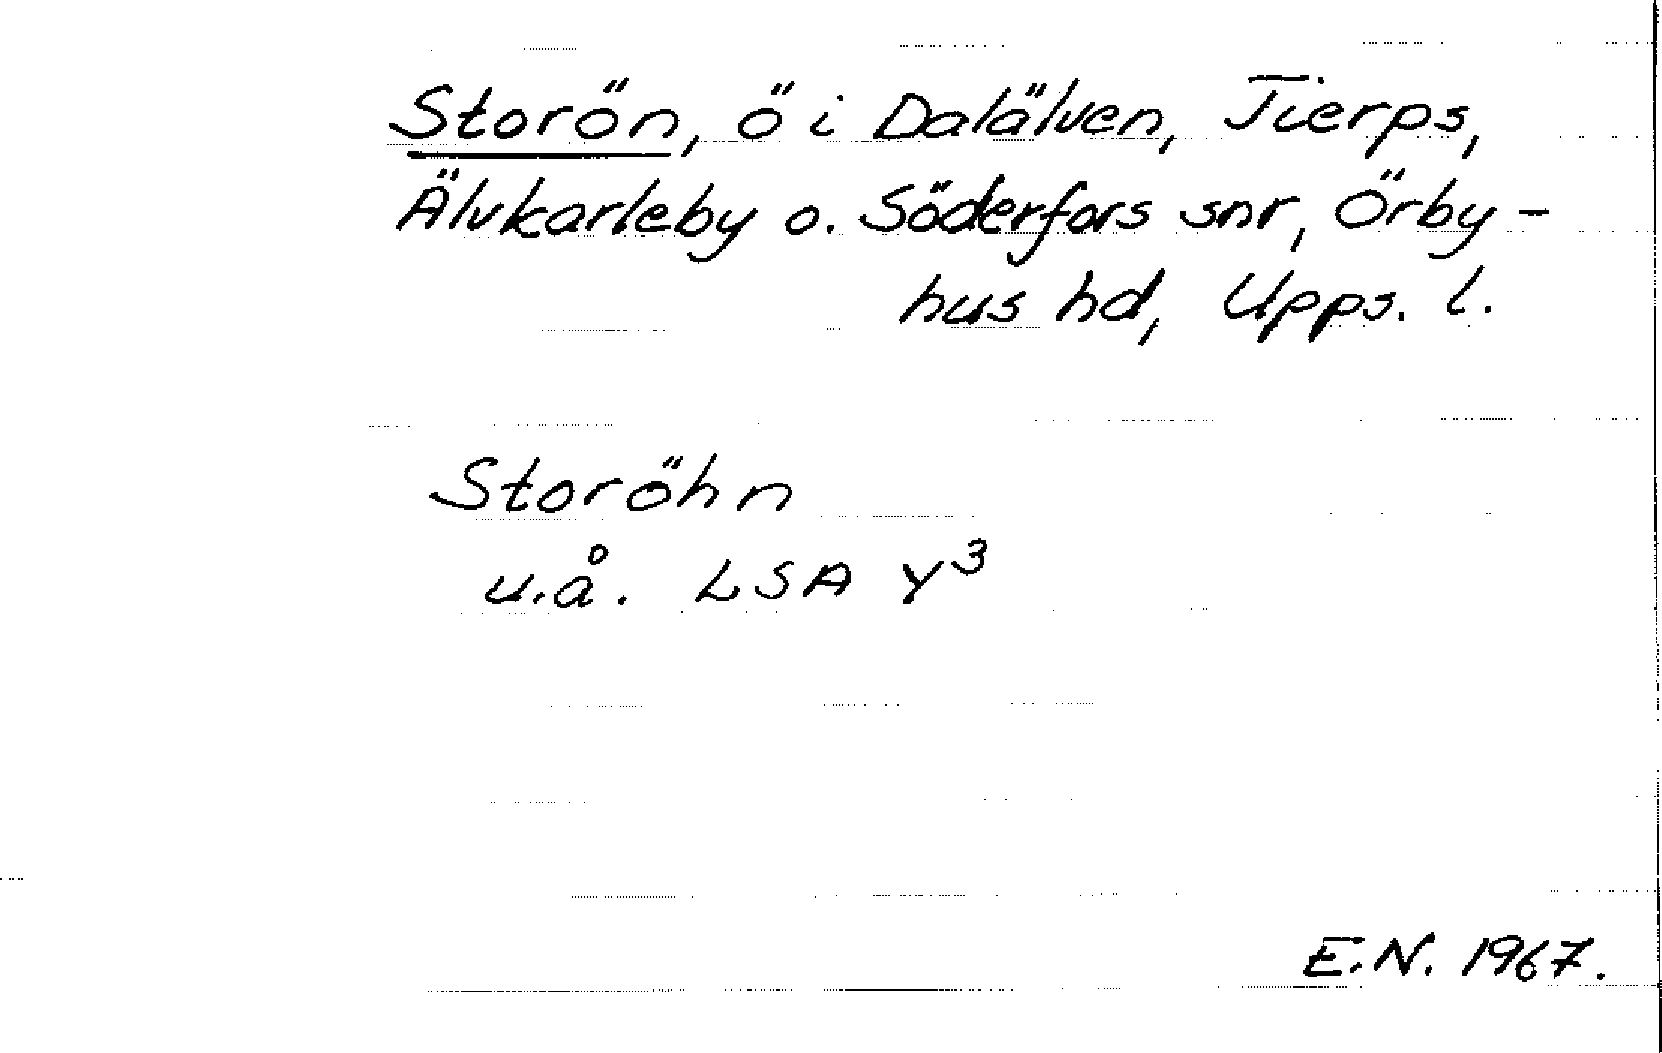 Storön, ö i Dalälven, Tierps,
Älvkarleby o. Söderfors snr, Örby-
hus hd, Upps. l.
Storöhn
u.å. LSA Y³
E.N. 1967.